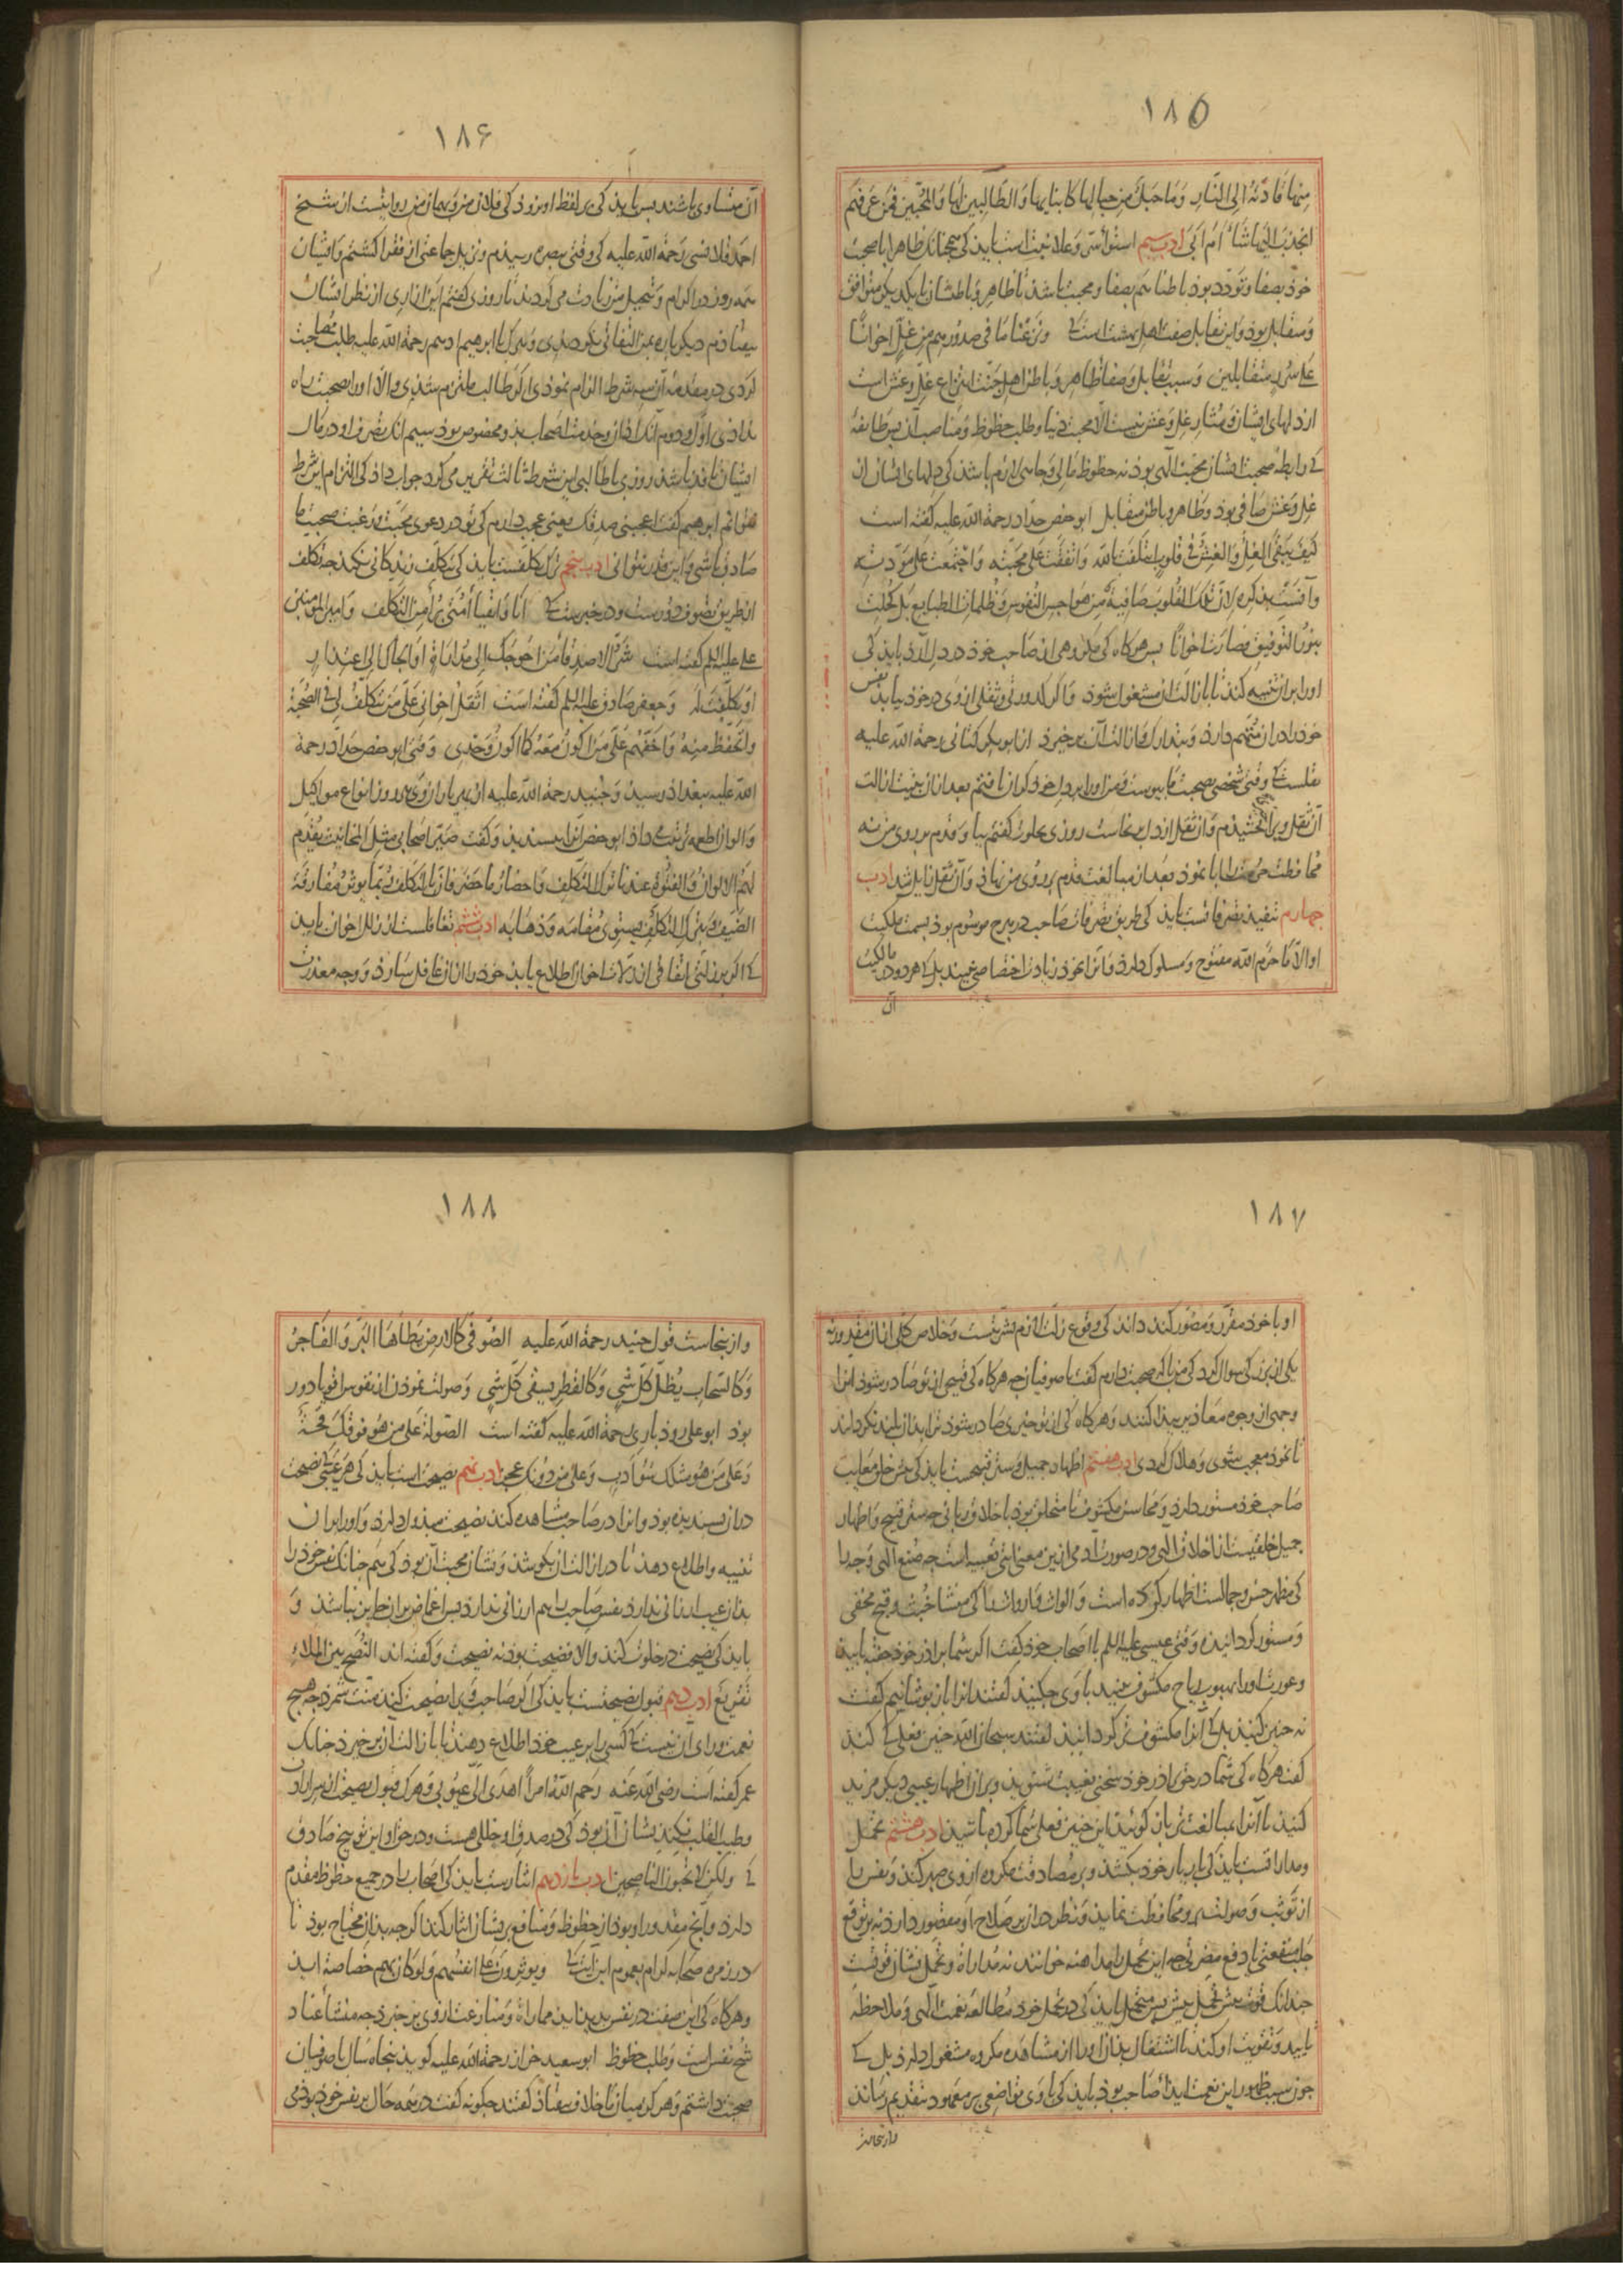 ١٨٥
منها قادته الی النار وما حبل من حبالها کابنایها والطالبین لها والمحبین فمن عرفهم
انجذب الیها شاء ام ابی ادب سیم استواء سر وعلانیت است باید کی همچنانک ظاهر با صحبت
خوذ بصفا وتودد بوذ باطنا هم بصفا ومحبت باشد تا ظاهر وباطنشان با یکدیکر متوافق
ومتقابل بوذ واین تقابل صفت اهل بهشت است کی ونزعنا ما فی صدورهم من غل اخوانا
علی سرر متقابلین وسبب تقابل وصفا ظاهر وباطن اهل جنت انتزاع غل وغش است
از دلهای ایشان ومثار غل وغش نیست الا محبت دنیا وطلب حظوظ ومناصب آن پس طایفهٔ
کی رابطهٔ صحبت ایشان محبت الهی بوذ نه حظوظ مالی وجاهی لازم باشد کی دلهای ایشان از
غل وغش صافی بوذ وظاهر وباطن متقابل ابو حفص حداد رحمة الله علیه کفته است
کیف یبقی الغل والغش فی قلوب ائتلفت بالله واتفقت علی محبته واجتمعت علی مودته
وآنست بذکره لان تلک القلوب صافیة من هواجس النفوس وظلمات الطبایع بل کحلت
بنور التوفیق فصارت اخوانا پس هرکاه کی مکروهی از صاحب خوذ در دل آرذ باید کی
اورا بر آن تنبیه کند تا بازالت آن مشغول شوذ واکر کدورتی وثقلی از وی در خوذ یابد نفس
خوذ را در آن متهم دارد وبتدارک وازالت آن برخیزد از ابو بکر کتانی رحمة الله علیه
نقلست کی وقتی شخصی بصحبت ما پیوست ومن اورا بر دل خوذ کران یافتم بعد از آن بنیت ازالت
آن ثقل ویرا چیزی بخشیدم وآن ثقل از دل برنخاست روزی بخلوت کفتم بیا وقدم بر روی من نه
محافظت حرمت را ابا نموذ وبعد از مبالغت قدم بر روی من نهاذ وآن ثقل زایل شد ادب
چهارم تنفیذ تصرفاتست باید کی طریق تصرفات صاحب در هرج موسوم بوذ بسمت ملکیت
او الا ما حرم الله مفتوح ومسلوک دارد وآنرا بخوذ زیادت اختصاصی نبیند بل کی هر دو در مالکیت
آن
١٨۶
آن متساوی باشند پس باید کی بر لفظ او نروذ کی فلان من وبهمان من روایتست از شیخ
احمد قلانسی رحمة الله علیه کی وقتی ببصره رسیدم ونزیل جماعتی از فقرا کشتم وایشان
همه روز در اکرام وتبجیل من زیادت می کردند تا روزی کفتم ایزار من از نظر ایشان
بیفتاذم دیکر باره بمن التفاتی نکردندی وبنزدیک ابراهیم ادهم رحمة الله علیه طلب صحبت
کردی در مقدمه آن سه شرط الزام نموذی اکر طالب ملتزم شدی والا اورا بصحبت راه
ندادی اول ودوم آنک اذان وخدمت اصحاب بذو مخصوص بوذ سیم آنک تصرف او در مال
ایشان نافذ باشد روزی با طالبی این شرط ثالث تقریر می کرد جواب داذ کی التزام این شرط
نتوانم ابراهیم کفت اعجبنی صدقک یعنی عجب دارم کی تو در دعوی محبت ورغبت صحبت ما
صادق باشی واین قدر نتوانی ادب پنجم ترک تکلفست باید کی بتکلف زندکانی نکند چه تکلف
از طریق تصوف دورست ودر خبرست کی انا واتقیاء امتی برآء من التکلف وامیر المؤمنین
علی علیه السلم کفته است شر الاصدقاء من احوجک الی مداراة او الجاک الی اعتذار
او تکلفت له وجعفر صادق علیه السلم کفته است اثقل اخوانی علی من تکلف لی فی الصحبة
واتحفظ منه واخفهم علی من اکون معه کما اکون وحدی وقتی ابو حفص حداد رحمة
الله علیه ببغداد رسید وجنید رحمة الله علیه از بهر یاران وی هر روز انواع مواکیل
والوان اطعمه ترتیب می داذ ابو حفص آنرا نپسندید وکفت صیر اصحابی مثل المخانیث یقدم
لهم الالوان والفتوة عندنا ترک التکلف واحضار ما حضر فان بالتکلف ربما یوثر مفارقة
الضیف وبترک التکلف یستوی مقامه وذهابه ادب ششم تغافلست از زلل اخوان باید
کی اکر بر زلتی اتفاقی از زلات اخوان اطلاع یابد خوذ را از آن غافل سازد ووجه معذرت
١٨٧
او با خوذ مقرر ومصور کند داند کی وقوع زلت لازم بشریتست وخلاص کلی از آن مقدور نه
یکی از بزرکی سوال کرد کی من با که صحبت دارم کفت با صوفیان چه هرکاه کی قبیحی از تو صادر شوذ آنرا
وجهی از وجوه معاذیر پیدا کنند وهرکاه کی از تو خیری صادر شوذ ترا بدان بلند نکردانند
تا بخوذ معجب شوی وهلاک کردی ادب هفتم اظهار جمیل وستر قبیحست باید کی بر خلق معایب
صاحب خوذ مستور دارد ومحاسن مکشوف تا متخلق بوذ باخلاق ربانی چه ستر قبیح واظهار
جمیل خلقیست از اخلاق الهی ودر صورت آدمی ازین معنی آیتی تعبیه است چه صنع الهی وجه را
کی مظهر حسن وجمالست اظهار کرده است والواث وارواث را کی منشا خبث وقبح مخفی
ومستور کردانیده وقتی عیسی علیه السلم با اصحاب خوذ کفت اکر شما براذر خوذ خفته یابید
وعورت اورا بهبوب ریاح مکشوف بینید با وی چکنید کفتند آنرا باز پوشانیم کفت
نه چنین کنید بل کی آنرا مکشوف تر کردانید کفتند سبحان الله چنین فعلی کی کند
کفت هرکاه کی شما در حق براذر خوذ سخنی بغیبت شنوید وبر آن اظهار عیبی دیکر مزید
کنید تا آنرا بمبالغت تر باز کوئید این چنین فعلی شما کرده باشید ادب هشتم تحمل
ومداراتست باید کی بار یار خوذ بکشد وبر مصادفت مکروه از وی صبر کند ونفس را
از توثب وصولت برو محافظت نماید ونظر در آن بر صلاح او مقصور دارد نه بر توقع
جلب منفعتی یا دفع مضرتی چه این تحمل را مداهنه خوانند نه مداراة وتحمل نشان قوتست
چندانک قوت بیش تحمل بیش پس متحمل باید کی در تحمل خوذ مطالعه نعمت الهی وملاحظهٔ
تایید وتقویت او کند تا اشتغال بذان اورا از مشاهده مکروه مشغول دارد بل کی
چون سبب ظهور این نعمت ایذاء صاحب بوذ باید کی با وی تواضعی بر معهود بتقدیم رساند
واز نجاست
١٨٨
واز ینجاست قول جنید رحمة الله علیه الصوفی کالارض یطأها البر والفاجر
وکالسحاب یظل کل شی وکالقطر یسقی کل شی وصولت نموذن از نفوس اقویا دور
بوذ ابو علی روذباری رحمة الله علیه کفته است الصولة علی من هو فوقک قحة
وعلی من هو مثلک سوء ادب وعلی من دونک عجز ادب نهم نصیحت است باید کی هر عیبی کی نصیحت
در آن پسندیده بوذ وآنرا در صاحب مشاهده کند نصیحت مبذول دارد واورا بر آن
تنبیه واطلاع دهد تا در ازالت آن بکوشد ونشان محبت آن بوذ کی هم چنانک نفس خوذ را
بذان عیب ارزانی ندارد نفس صاحب را هم ارزانی ندارد پس اغماض بر آن جایز نباشد و
باید کی نصیحت در خلوت کند والا فضیحت بوذ نه نصیحت وکفته اند النصح بین الملاء
تقریع ادب دهم قبول نصیحتست باید کی اکر صاحب ویرا نصیحت کند منت شمرد چه هیچ
نعمت ورای آن نیست کی کسی را بر عیب خوذ اطلاع دهند تا بازالت آن برخیزد چنانک
عمر کفته است رضی الله عنه رحم الله امرأ اهدی الی عیوبی وهرک قبول نصیحت از سر ارادت
وطیب القلب نکند نشان آن بوذ کی در صدق او خللی هست ودر حق او این توبیخ صادق
کی ولکن لا تحبون الناصحین ادب یازدهم ایثارست باید کی اصحاب را در جمیع حظوظ مقدم
دارد وآنچ مقدور او بوذ از حظوظ ومنافع بریشان ایثار کند اکرچه بذان محتاج بوذ تا
در زمره صحابه کرام بعموم این آیت کی ویوثرون علی انفسهم ولو کان بهم خصاصة آید
وهرکاه کی این صفت در نفس پدید آید مماراة ومنازعت از وی برخیزد چه منشأ عناد
شح نفس است وطلب حظوظ ابو سعید خراز رحمة الله علیه کوید پنجاه سال با صوفیان
صحبت داشتم وهرکز میان ما خلاف نیفتاذ کفتند چکونه کفت در همه حال بر نفس خوذ بوذمی